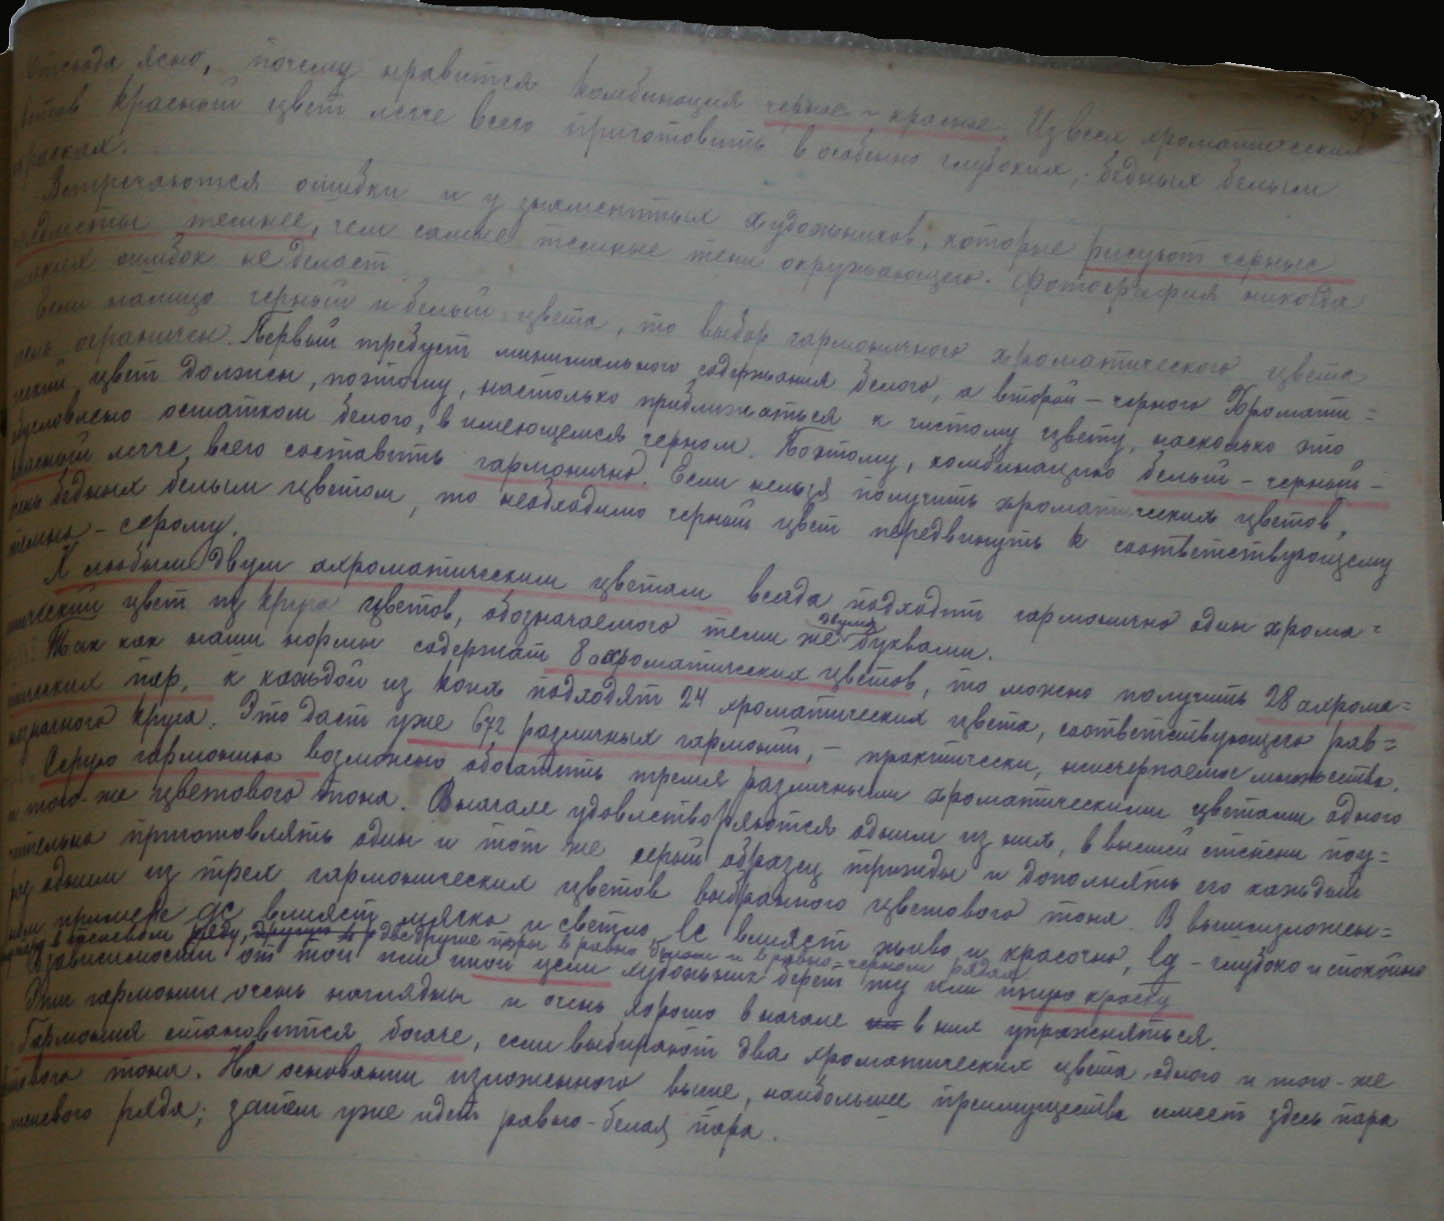 Отсюда ясно, почему нравится комбинация черное - красное. Из всех хроматических
цветов красный цвет легче всего приготовить в особенно глубоких, бедных белым
красках.
Встречаются ошибки и у знаменитых художников, которые рисуют черные
предметы темнее, чем самые темные тени окружающего. Фотография никогда
таких ошибок не делает.
Если налицо черный и белый цвета, то выбор гармоничного хроматического цвета
очень ограничен. Первый требует минимального содержания белого, а второй - черного Хромати=
ческий цвет должен, поэтому, настолько приближаться к чистому цвету, насколько это
обусловлено остатком белого, в имеющемся черном. Поэтому, комбинацию белый - черный -
красный легче всего составить гармонично. Если нельзя получить хроматических цветов,
очень бедных белым цветом, то необходимо черный цвет передвинуть к соответствующему
темно - серому.
К любым двум ахроматическим цветам всегда подходит гармонично один хрома=
тический цвет из круга цветов, обозначаемого теми же двумя буквами.
Так как наши нормы содержат 8 ахроматических цветов, то можно получить 28 ахрома=
тических пар, к каждой из коих подходят 24 хроматических цвета, соответствующего рав=
нозначного круга. Это даст уже 672 различных гармоний, - практически, неисчерпаемое множество.
Серую гармонию возможно обогатить тремя различными хроматическими цветами одного
и того-же цветового тона. Вначале удовлетворяются одним из них, в высшей степени поу=
чительно приготовлять один и тот же серый образец трижды и дополнять его каждый
раз одним из трех гармонических цветов выбранного цветового тона. В вышеизложен=
ном примере gc влияет мягко и светло, lc влияет живо и красочно, lg - глубоко и спокойно
в теневом ряду, две другие пары в равно-белом и в равно-черном рядах
В зависимости от той или иной цели художник берет ту или иную краску
Эти гармонии очень наглядны и очень хорошо вначале в них упражняться.
Гармония становится богаче, если выбирают два хроматических цвета одного и того-же
цветового тона. На основании изложенного выше, наибольшее преимущество имеет здесь пара
теневого ряда; затем уже идет равно-белая пара.